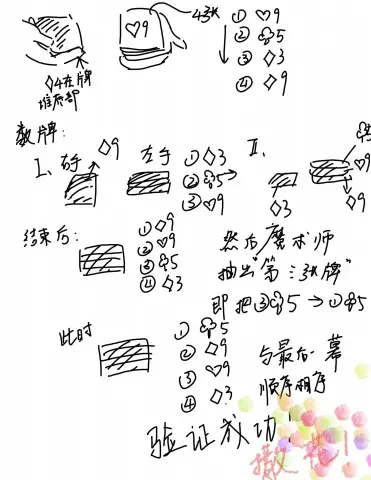 ♡9
4张
① ♡9
② ♧5
③ ◇3
④ ◇9
◇4在牌
堆底部
数牌:
I、右手 ◇9
左手 ① ◇3
② ♧5
③ ♡9
II、
♧5
♡9
◇9
◇3
结束后:
① ◇9
② ♡9
③ ♧5
④ ◇3
然后魔术师
抽出"第三张牌"
即把③♧5→①♧5
此时
① ♧5
② ◇9
③ ♡9
④ ◇3
与最后一幕
顺序相序
验证成功!
撒花!